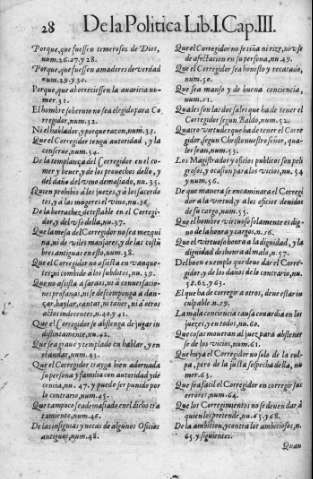 28 De la Politica Lib.I.Cap.III.
Porque, que fuessen temerosos de Dios,
num.26.27.y 28.
Porque, que fuessen amadores de verdad
num.29.y 30.
Porque, que aborreciessen la auaricia nu-
mer.31.
El hombre soberuio no sea elegido para Co
rregidor, num.32.
Ni el hablador, y porque razon, num.33.
Que el Corregidor tenga autoridad, y la
conserue, num.34.
De la templança del Corregidor en el co-
mer y beuer, y de los prouechos dello, y
del daño del vino demasiado, nu.35.
Quien prohibio a los juezes, y a los sacerdo
tes, y a las mugeres el vino, nu.36.
De la borrachez detestable en el Corregi-
dor, y del vso dello, nu.37.
Que la mesa del Corregidor no sea mezqui
na, ni de viles manjares, y de las costū
bres antiguas en esso, num.38.
Que el Corregidor no assista en vanque-
tes, ni combido a los subditos, nu.39.
Que no assista a saraos, ni a conuersacio-
nes profanas, ni se descomponga a dan-
çar, baylar, cantar, ni tañer, ni a otros
actos indecentes, n.40.y 41.
Que el Corregidor se abstenga de jugar in
distintamente, nu.42.
Que sea graue y templado en hablar, y en
mandar, num.43.
Que el Corregidor trayga bien adornada
su persona y familia con autoridad y de
cencia, nu.47. y puede ser punido por
lo contrario, num.45.
Que tampoco sea demasiado en el dicho tra
tamiento, num.46.
De las insignias y notas de algunos Oficios
antiguos, num.48.
Que el Corregidor no se tiña ni rize, no vse
de afectacion en su persona, nu.49.
Que el Corregidor sea honesto y recatado,
num.50.
Que sea manso y de buena conciencia,
num.51.
Quales son las dos sales que ha de tener el
Corregidor segun Baldo, num.52.
Quatro virtudes que ha de tener el Corre
gidor, segun Christo nuestro señor, qua-
les sean, num.53.
Los Magistrados y oficios publicos son peli
grosos, y ocasion para los vicios, nu.54
y num.56.
De que manera se encaminara el Corregi
dor a la virtud, y a los oficios deuidos
de su cargo, num.55.
Que el hombre virtuoso solamente es dig-
no de la honra y cargos, n.16.
Que el virtuoso honra a la dignidad, y la
dignidad deshonra al malo, n.57.
Del buen exemplo que deue dar el Corre-
gidor, y de los daños de lo contrario, nu.
58.62.y 63.
El que ha de corregir a otros, deue estar in
culpable n.59.
La mala conciencia causa couardia en los
juezes, y en todos, nu.60.
Que cosas mueuan al juez para abstener
se de los vicios, num.61.
Que huya el Corregidor no solo de la cul-
pa, pero de la justa sospecha della, nu-
mer.63.
Que sea facil el Corregidor en corregir sus
errores, num.64.
Que los Corregimientos no se deuen dar à
quien los pretende, nu.65.y 68.
De la ambicion, y contra los ambiciosos, n.
65.y siguientes.
Quan